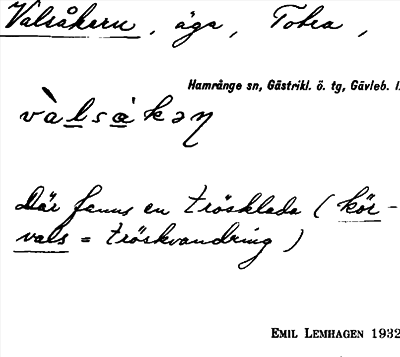 Valsåkern, äga, Tolva,
Hamrånge sn, Gästrikl. ö. tg, Gävleb. l.
vàlsàkəɳ
Där fanns en trösklada (kör-
vals = tröskvandring)
EMIL LEMHAGEN 1932